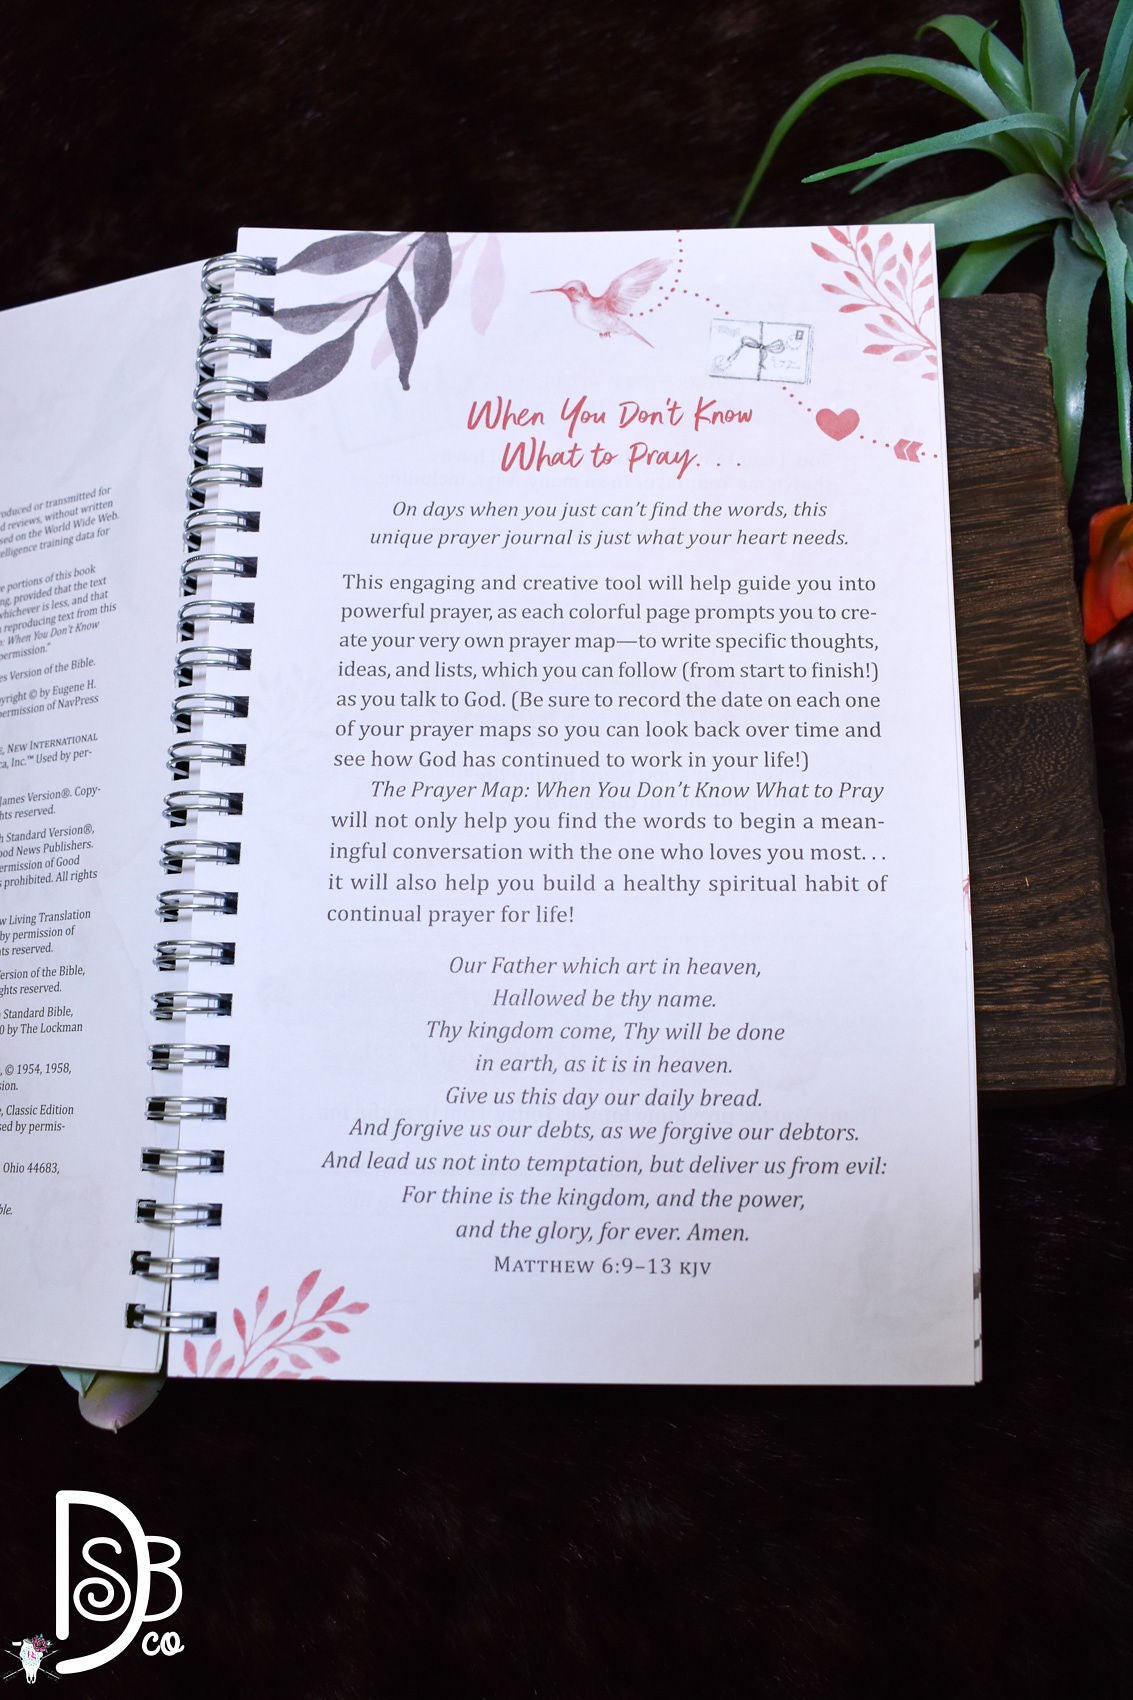 oduced or transmitted for
d reviews, without written
sed on the World Wide Web.
elligence training data for
e portions of this book
ng, provided that the text
whichever is less, and that
reproducing text from this
: When You Don't Know
permission."
es Version of the Bible.
yright © by Eugene H.
permission of NavPress
E, NEW INTERNATIONAL
ca, Inc.™ Used by per-
James Version®. Copy-
hts reserved.
h Standard Version®,
ood News Publishers.
ermission of Good
s prohibited. All rights
w Living Translation
by permission of
ts reserved.
ersion of the Bible,
ghts reserved.
Standard Bible,
0 by The Lockman
, © 1954, 1958,
sion.
e, Classic Edition
sed by permis-
Ohio 44683,
ble.
When You Don't Know
What to Pray. . .
On days when you just can't find the words, this
unique prayer journal is just what your heart needs.
This engaging and creative tool will help guide you into
powerful prayer, as each colorful page prompts you to cre-
ate your very own prayer map—to write specific thoughts,
ideas, and lists, which you can follow (from start to finish!)
as you talk to God. (Be sure to record the date on each one
of your prayer maps so you can look back over time and
see how God has continued to work in your life!)
The Prayer Map: When You Don't Know What to Pray
will not only help you find the words to begin a mean-
ingful conversation with the one who loves you most. . .
it will also help you build a healthy spiritual habit of
continual prayer for life!
Our Father which art in heaven,
Hallowed be thy name.
Thy kingdom come, Thy will be done
in earth, as it is in heaven.
Give us this day our daily bread.
And forgive us our debts, as we forgive our debtors.
And lead us not into temptation, but deliver us from evil:
For thine is the kingdom, and the power,
and the glory, for ever. Amen.
MATTHEW 6:9–13 KJV
DSB
co